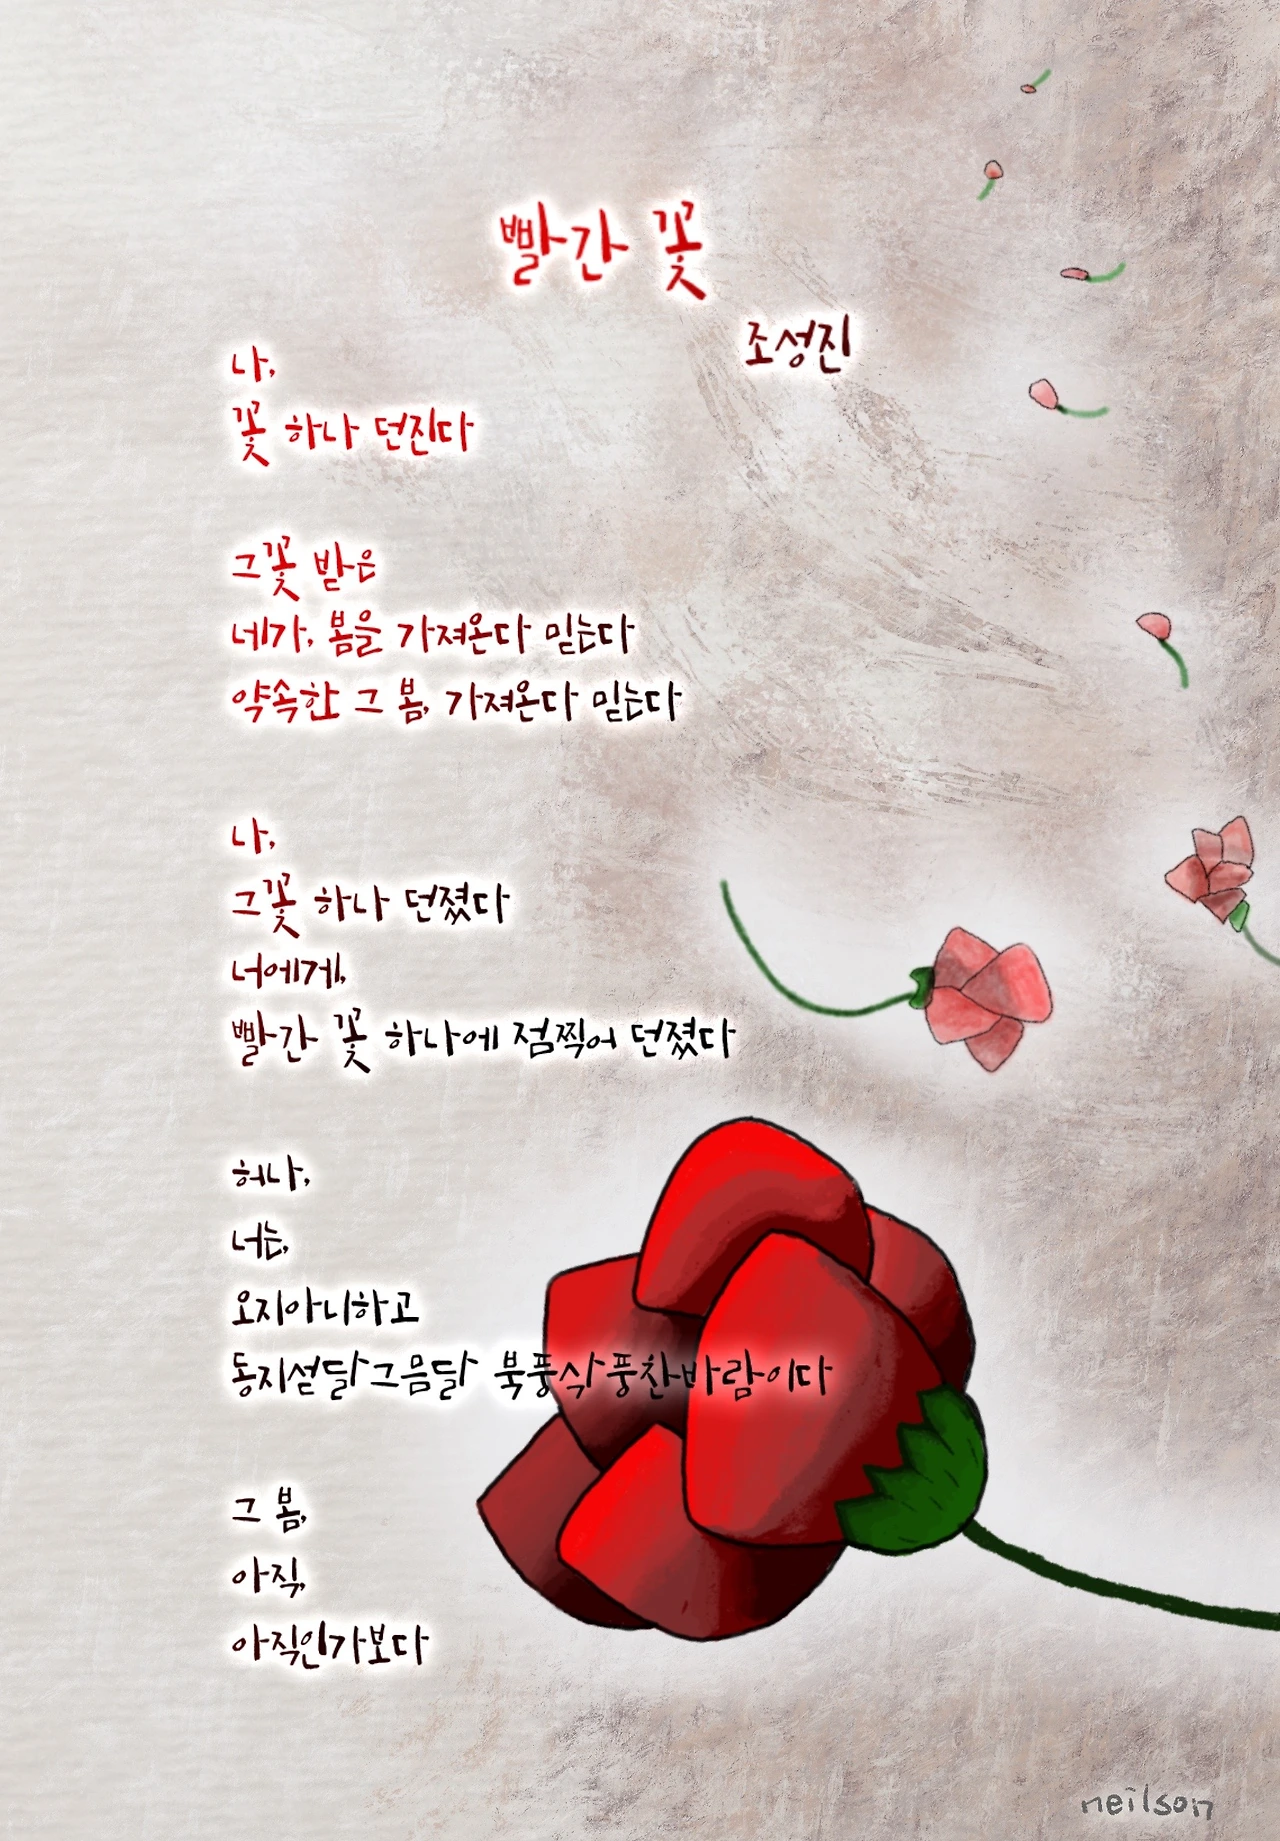 빨간 꽃
조성진
나,
꽃 하나 던진다
그꽃 받은
네가, 봄을 가져온다 믿는다
약속한 그 봄, 가져온다 믿는다
나,
그꽃 하나 던졌다
너에게,
빨간 꽃 하나에 점찍어 던졌다
허나,
너는,
오지아니하고
동지섣달그믐달 북풍삭풍찬바람이다
그 봄,
아직,
아직인가보다
neilson